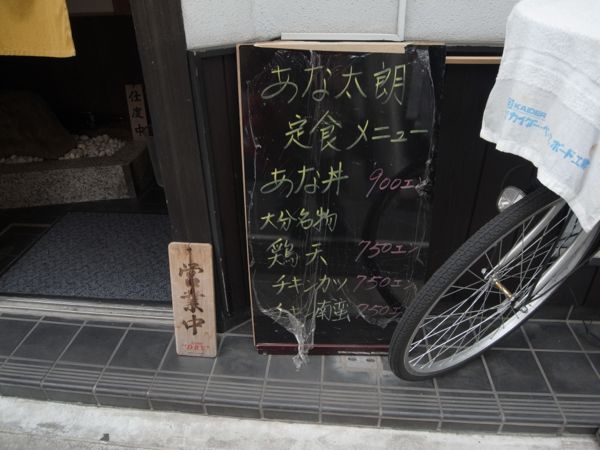 あな太朗
定食メニュー
あな丼 900エン
大分名物
鶏天 750エン
チキンカツ 750エン
チキン南蛮 750エン
営業中
仕度中
KAIDER